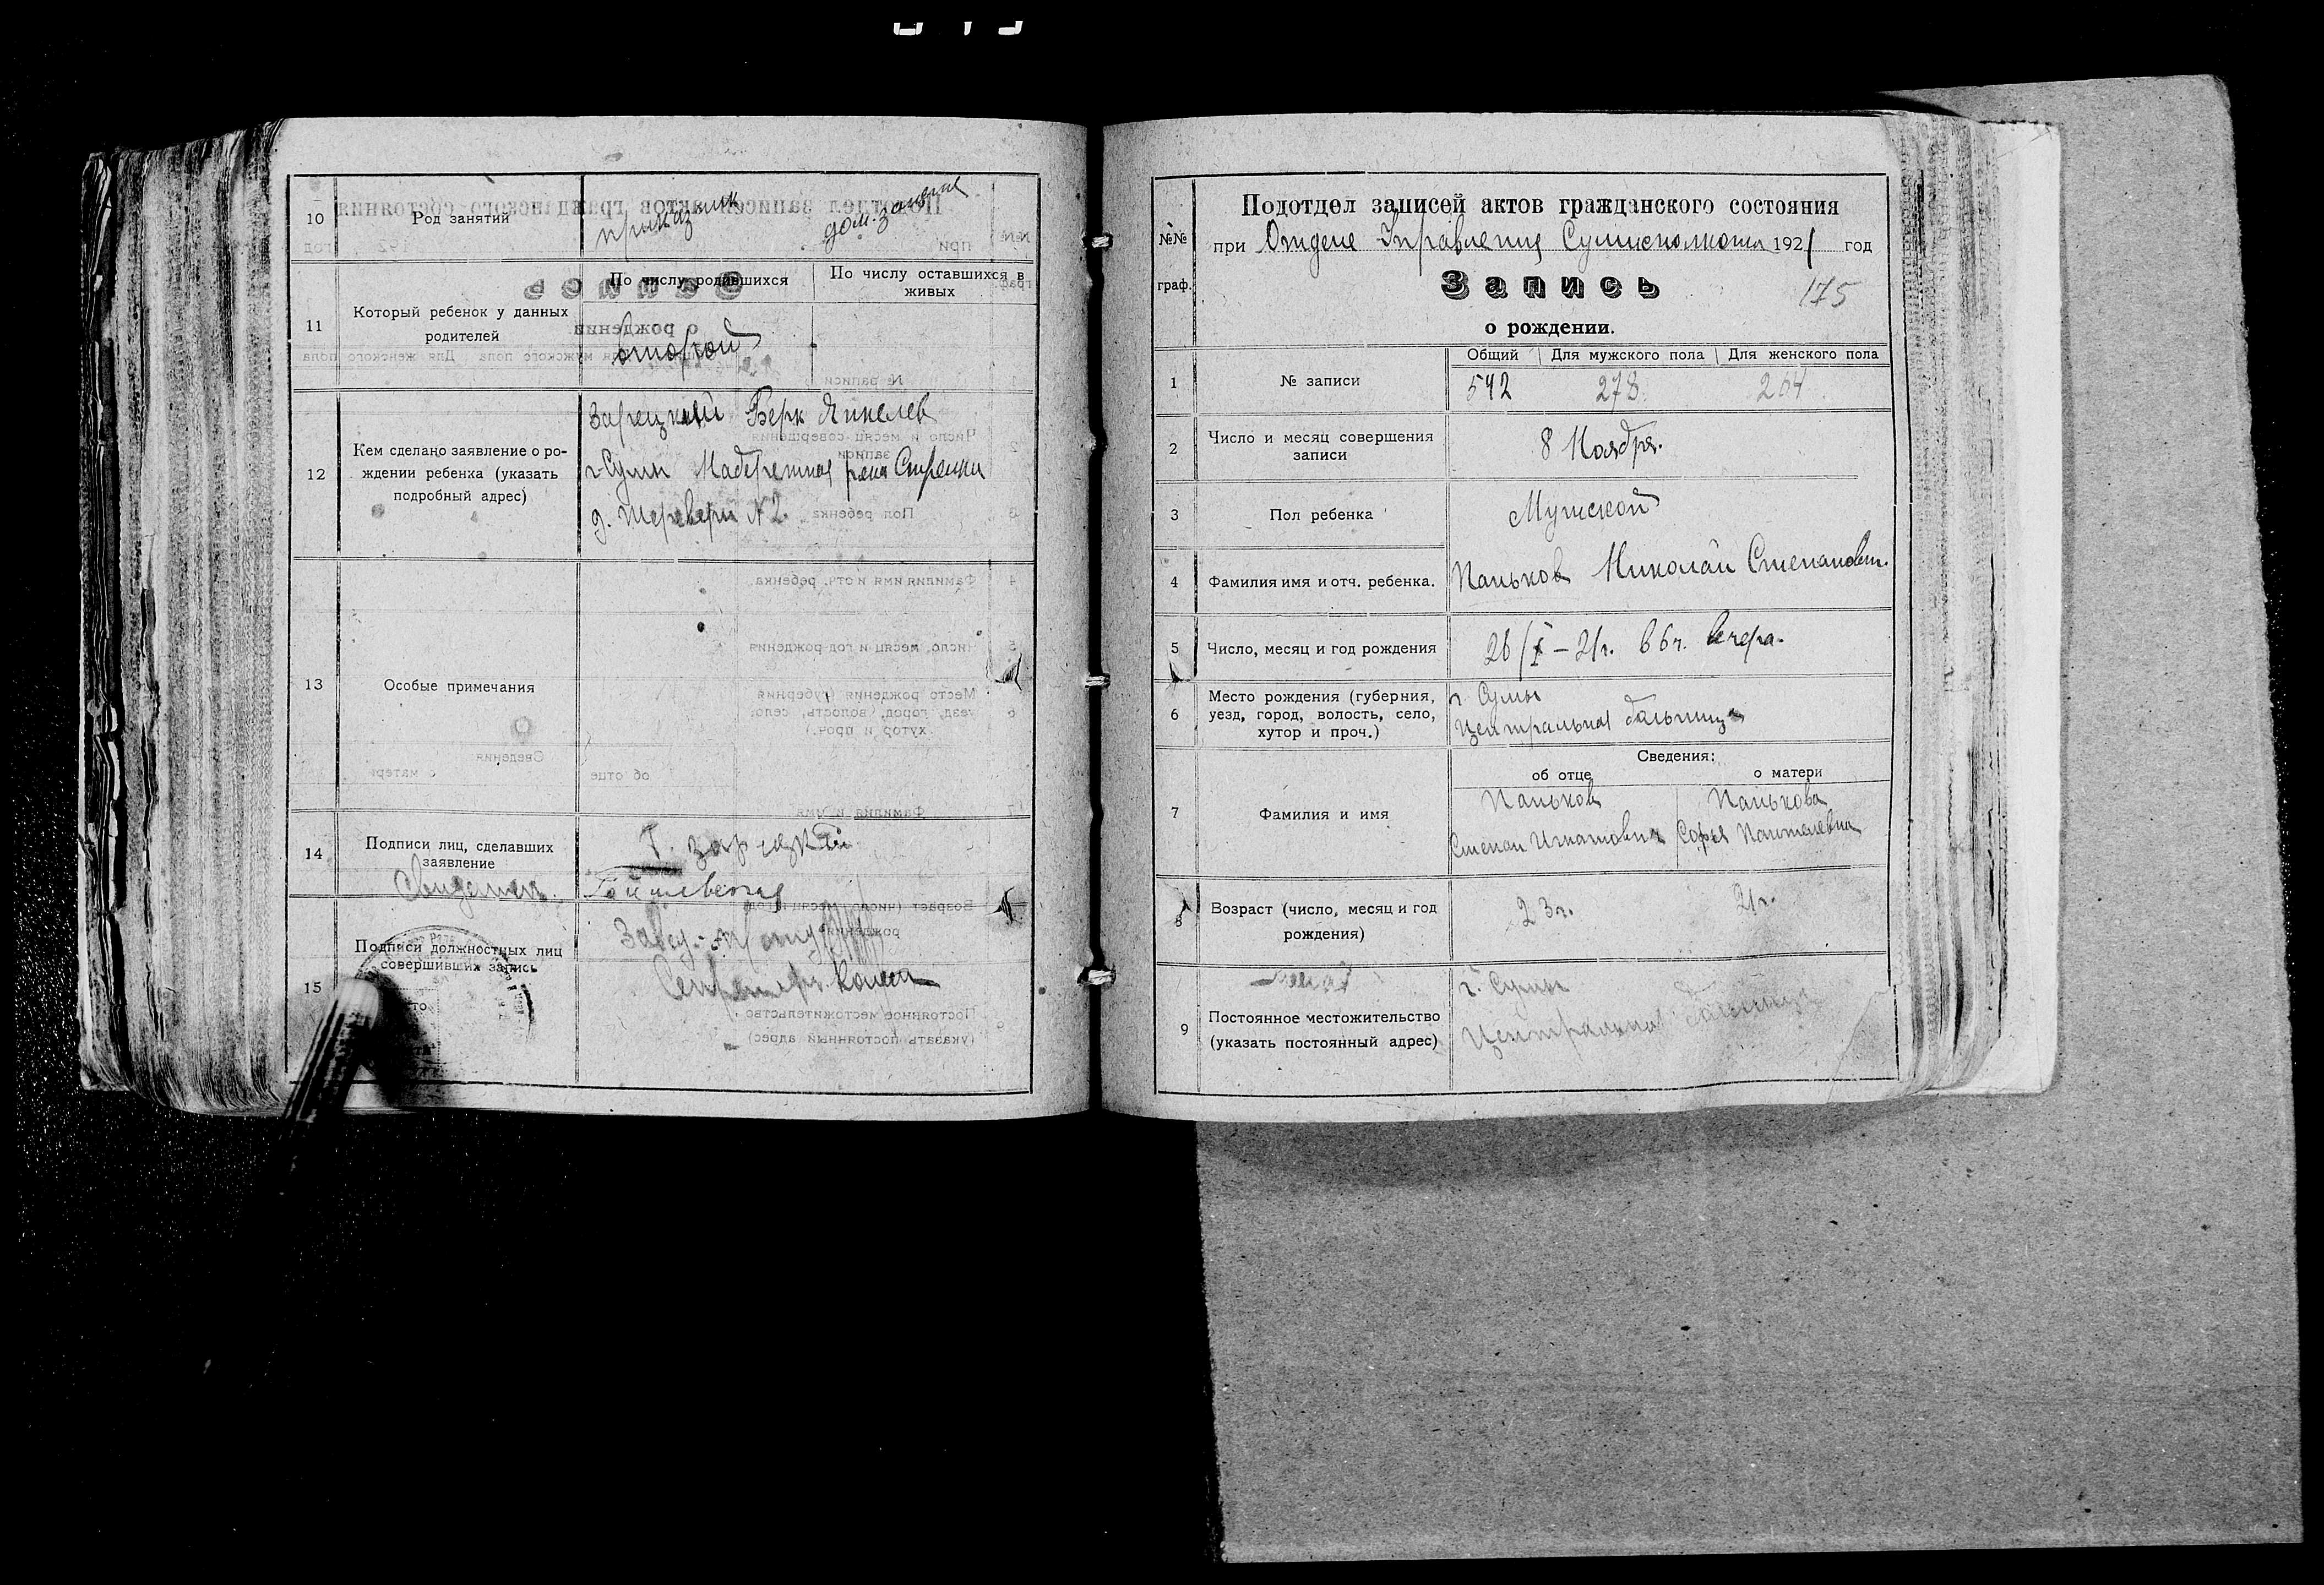 10
Род занятий
приказчик
дом. занятие
11
Который ребенок у данных
родителей
По числу родившихся
По числу оставшихся в
живых
второй
12
Кем сделано заявление о ро-
ждении ребенка (указать
подробный адрес)
Зарецкий Берк Янкелев
г. Сумы Набережная реки Стрелки
д. № 2
13
Особые примечания
14
Подписи лиц, сделавших
заявление
Зарецкий
15
Подписи должностных лиц
совершивших запись
Завед.
Секретарь
№№
граф.
Подотдел записей актов гражданского состояния
при Отделе Управления Сумисполкома 1921 год
Запись
175
о рождении.
1
№ записи
Общий Для мужского пола Для женского пола
542 278 264
2
Число и месяц совершения
записи
8 Ноября.
3
Пол ребенка
Мужской
4
Фамилия имя и отч. ребенка.
Паньков Николай Степанович.
5
Число, месяц и год рождения
26/X – 21 г. в 6 ч. вечера.
6
Место рождения (губерния,
уезд, город, волость, село,
хутор и проч.)
г. Сумы
Центральная больница
Сведения:
об отце
о матери
7
Фамилия и имя
Паньков
Степан Игнатович
Панькова
Софья Пантелевна
8
Возраст (число, месяц и год
рождения)
23 г.
21 г.
9
Постоянное местожительство
(указать постоянный адрес)
г. Сумы
Центральная больница